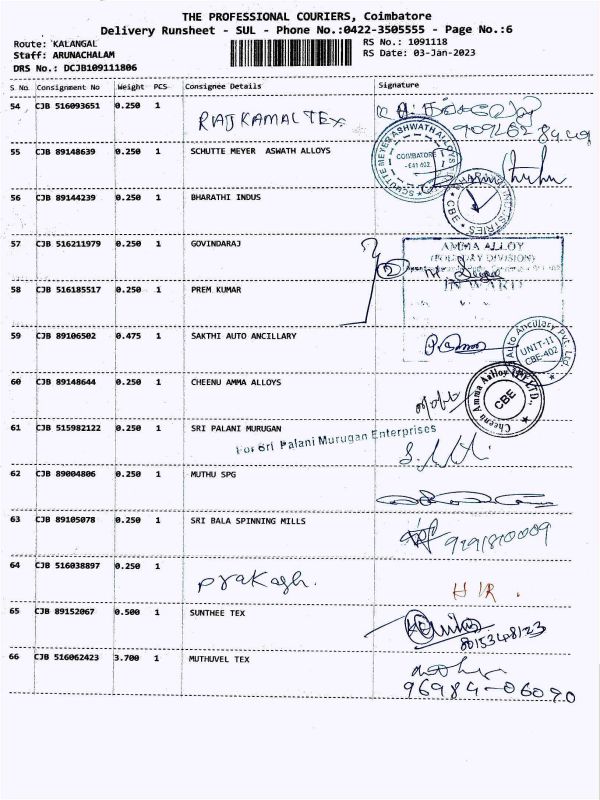 THE PROFESSIONAL COURIERS, Coimbatore
Delivery Runsheet - SUL - Phone No.:0422-3505555 - Page No.:6
Route: KALANGAL RS No.: 1091118
Staff: ARUNACHALAM RS Date: 03-Jan-2023
DRS No.: DCJB109111806
S No. Consignment No Weight PCS Consignee Details Signature
54 CJB 516093651 0.250 1 RAJKAMAL TEX
55 CJB 89148639 0.250 1 SCHUTTE MEYER ASWATH ALLOYS
SCHUTTE MEYER ASHWATH ALLOYS
COIMBATORE
-641 402
56 CJB 89144239 0.250 1 BHARATHI INDUS
INDUSTRIES
CBE
57 CJB 516211979 0.250 1 GOVINDARAJ
AMMA ALLOY
(FOUNDRY DIVISION)
INWARD
58 CJB 516185517 0.250 1 PREM KUMAR
59 CJB 89106502 0.475 1 SAKTHI AUTO ANCILLARY
Auto Ancillary Pvt. Ltd.
UNIT-II
CBE-402
60 CJB 89148644 0.250 1 CHEENU AMMA ALLOYS
CBE
61 CJB 515982122 0.250 1 SRI PALANI MURUGAN
For Sri Palani Murugan Enterprises
62 CJB 89004806 0.250 1 MUTHU SPG
63 CJB 89105078 0.250 1 SRI BALA SPINNING MILLS
64 CJB 516038897 0.250 1 prakash. HR.
65 CJB 89152067 0.500 1 SUNTHEE TEX
66 CJB 516062423 3.700 1 MUTHUVEL TEX
96984-06090